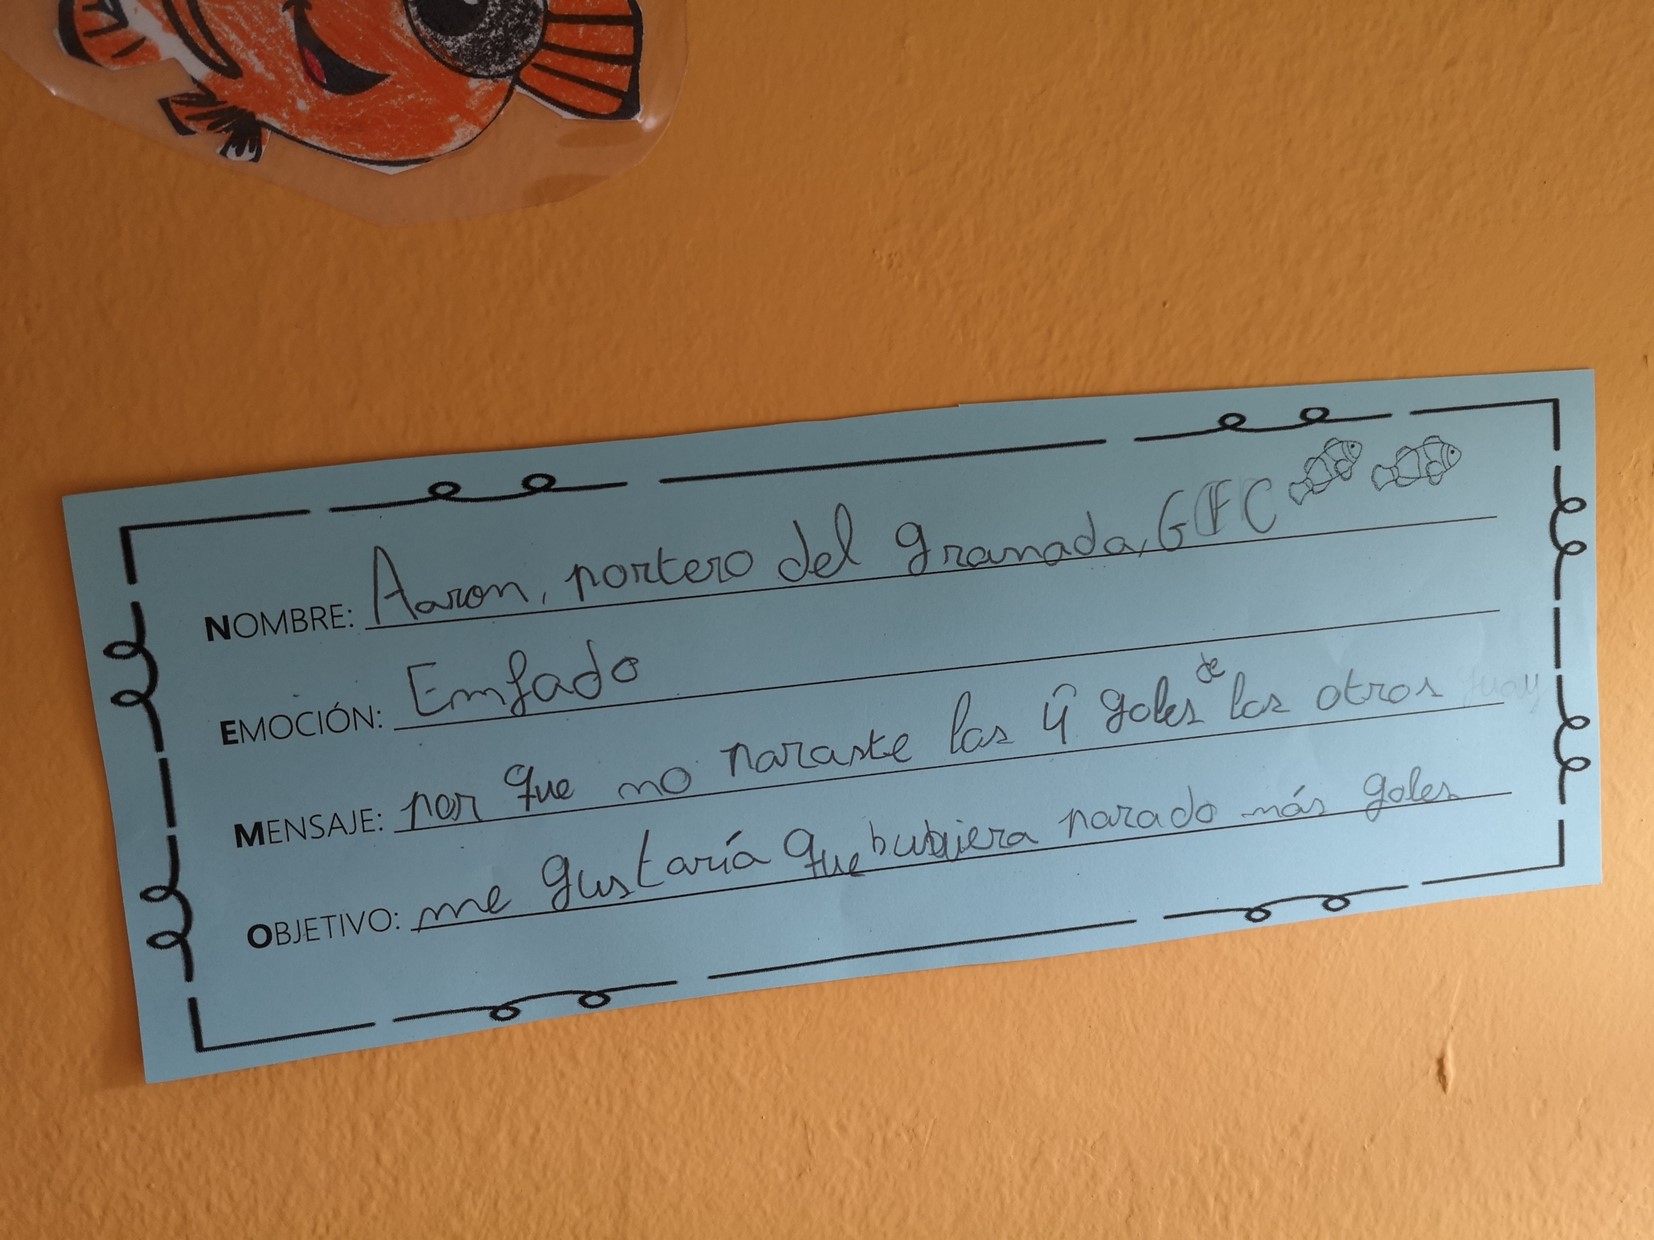 NOMBRE: Aaron, portero del granada, GFC
EMOCIÓN: Enfado
MENSAJE: por que no paraste las 4 goles de los otros
OBJETIVO: me gustaría que hubiera parado más goles